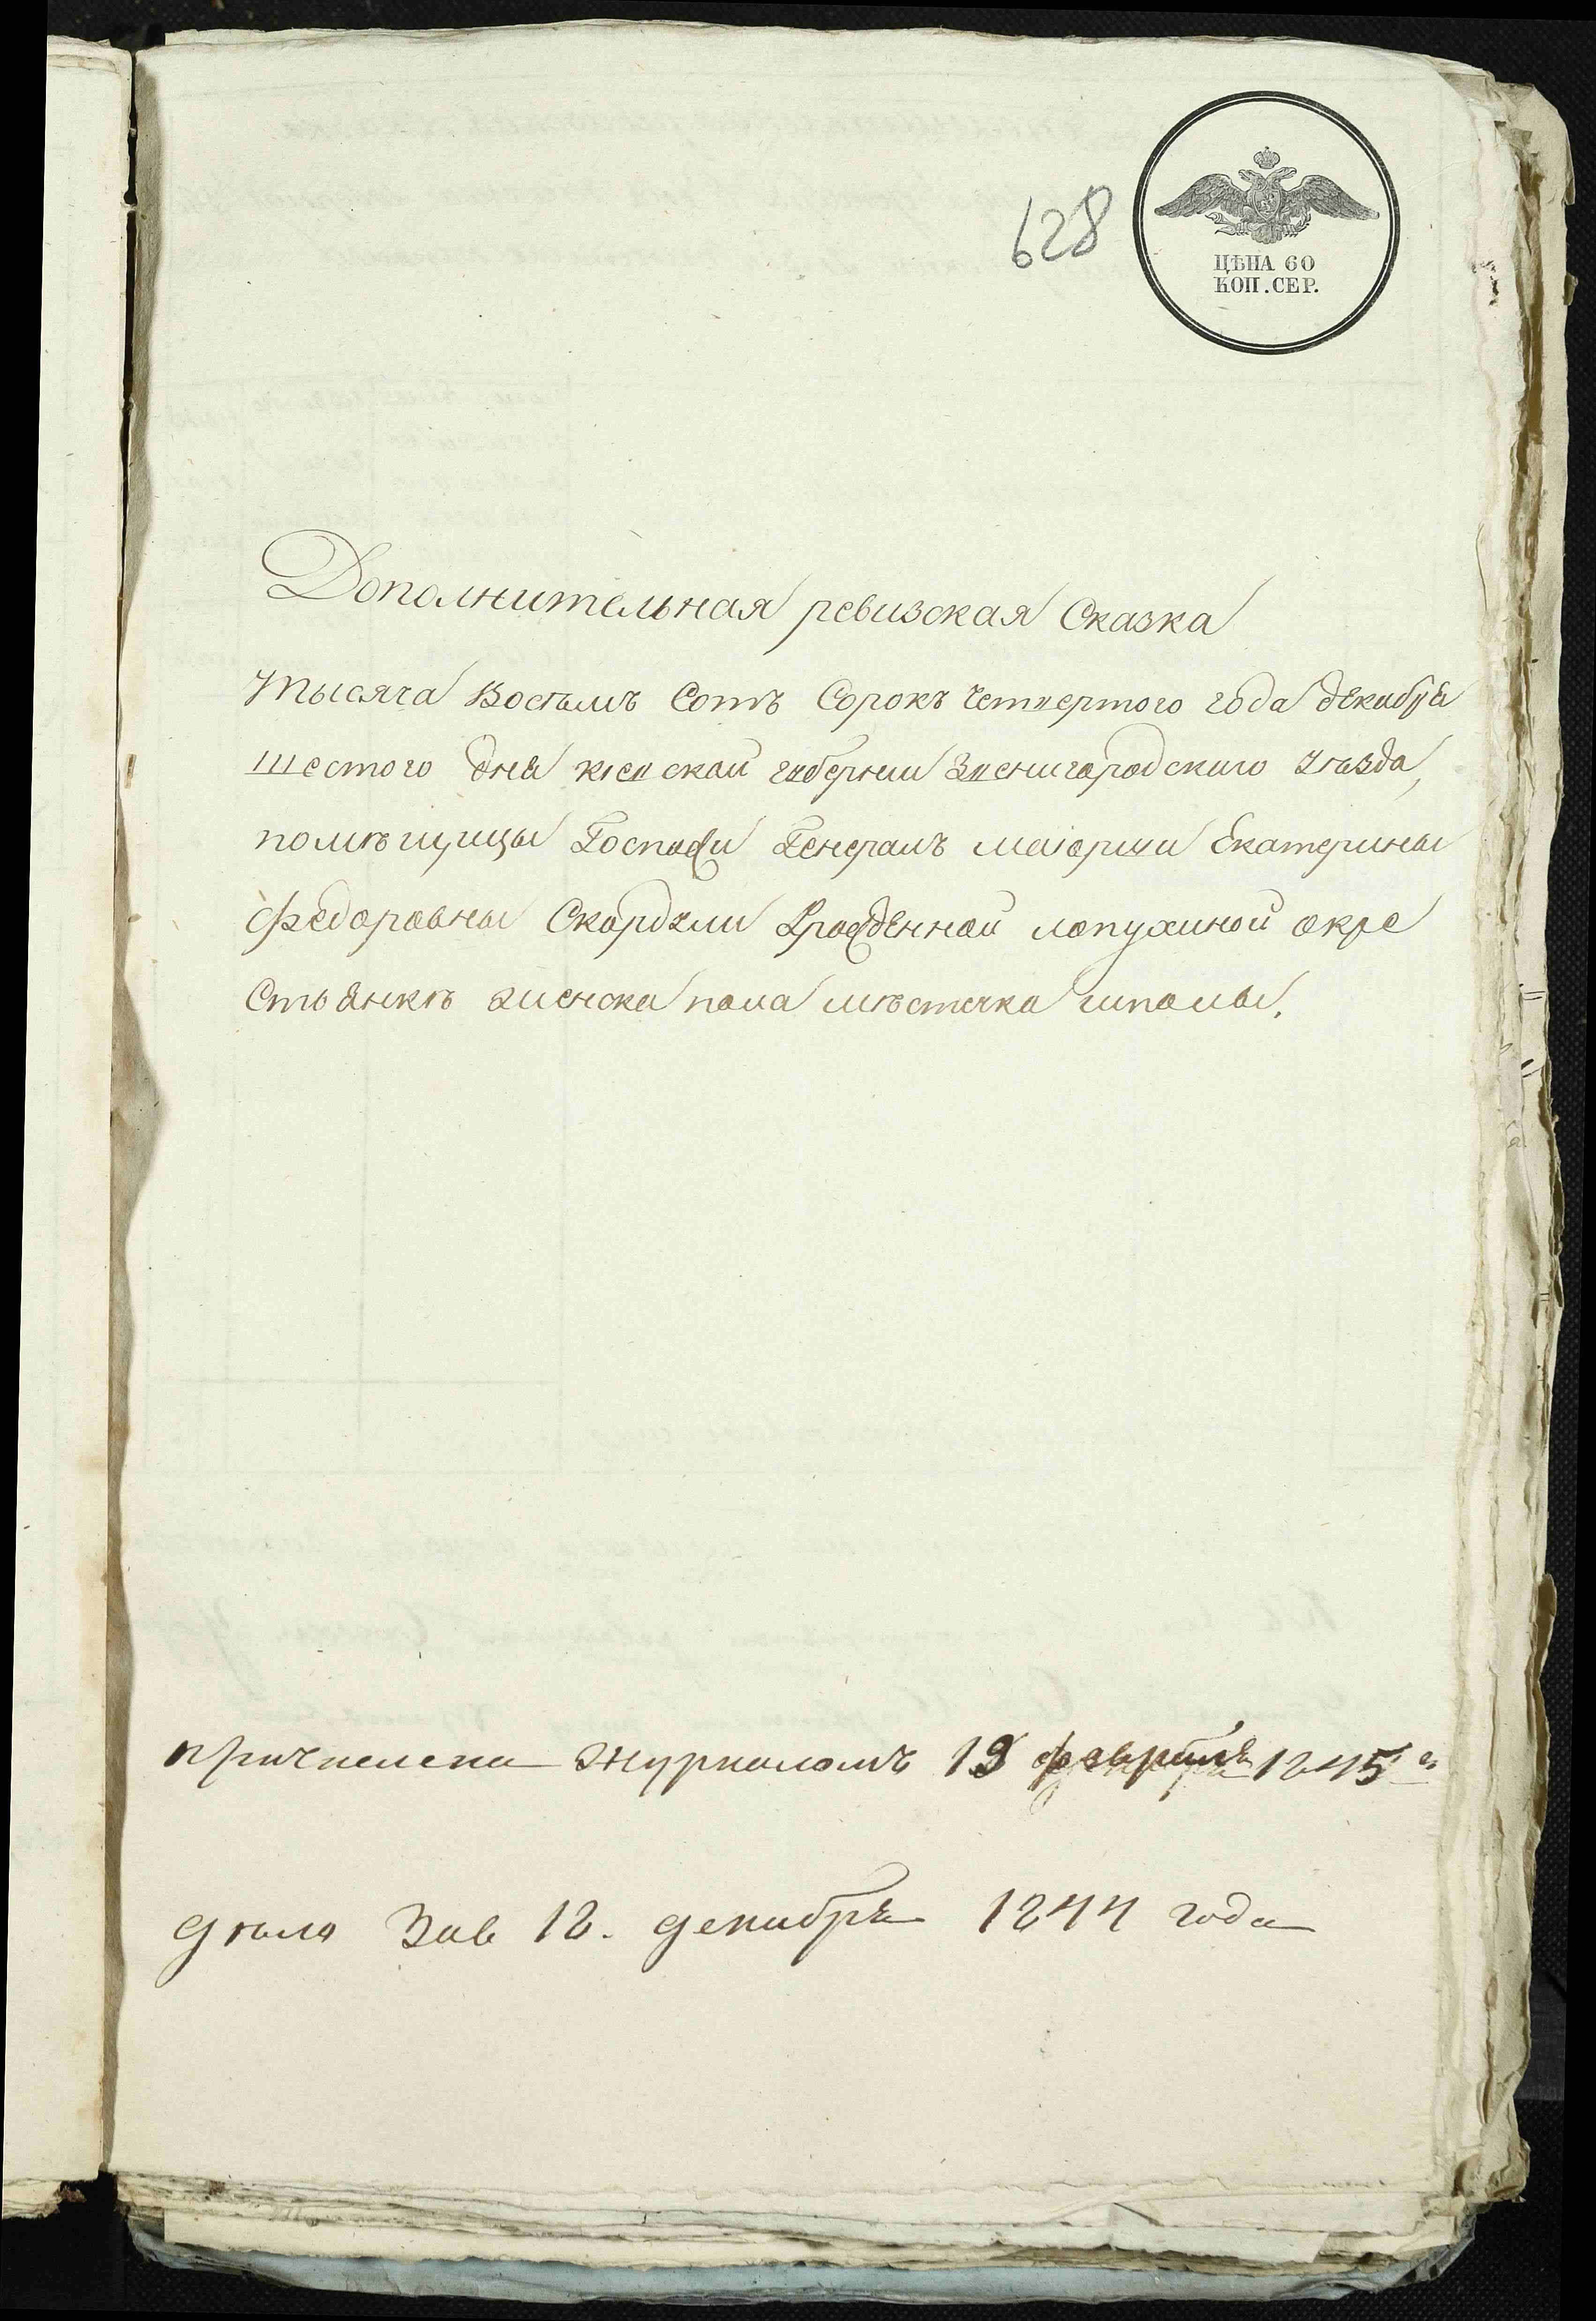 628
ЦѢНА 60
КОП. СЕР.
Дополнительная ревизская Сказка
тысяча Восемъ Сотъ Сорокъ Четвертого года декабря
шестого дня кіевской губернии Звенигородского уѣзда,
помѣщицы Госпожи Генералъ маіорши Екатерины
Федоровны Скаржели Урожденной лопухиной окре
Стьянкѣ женска пола мѣстечка шполы.
причислена журналомъ 19 февраля 1845 г
дѣло 12. декабря 1844 года